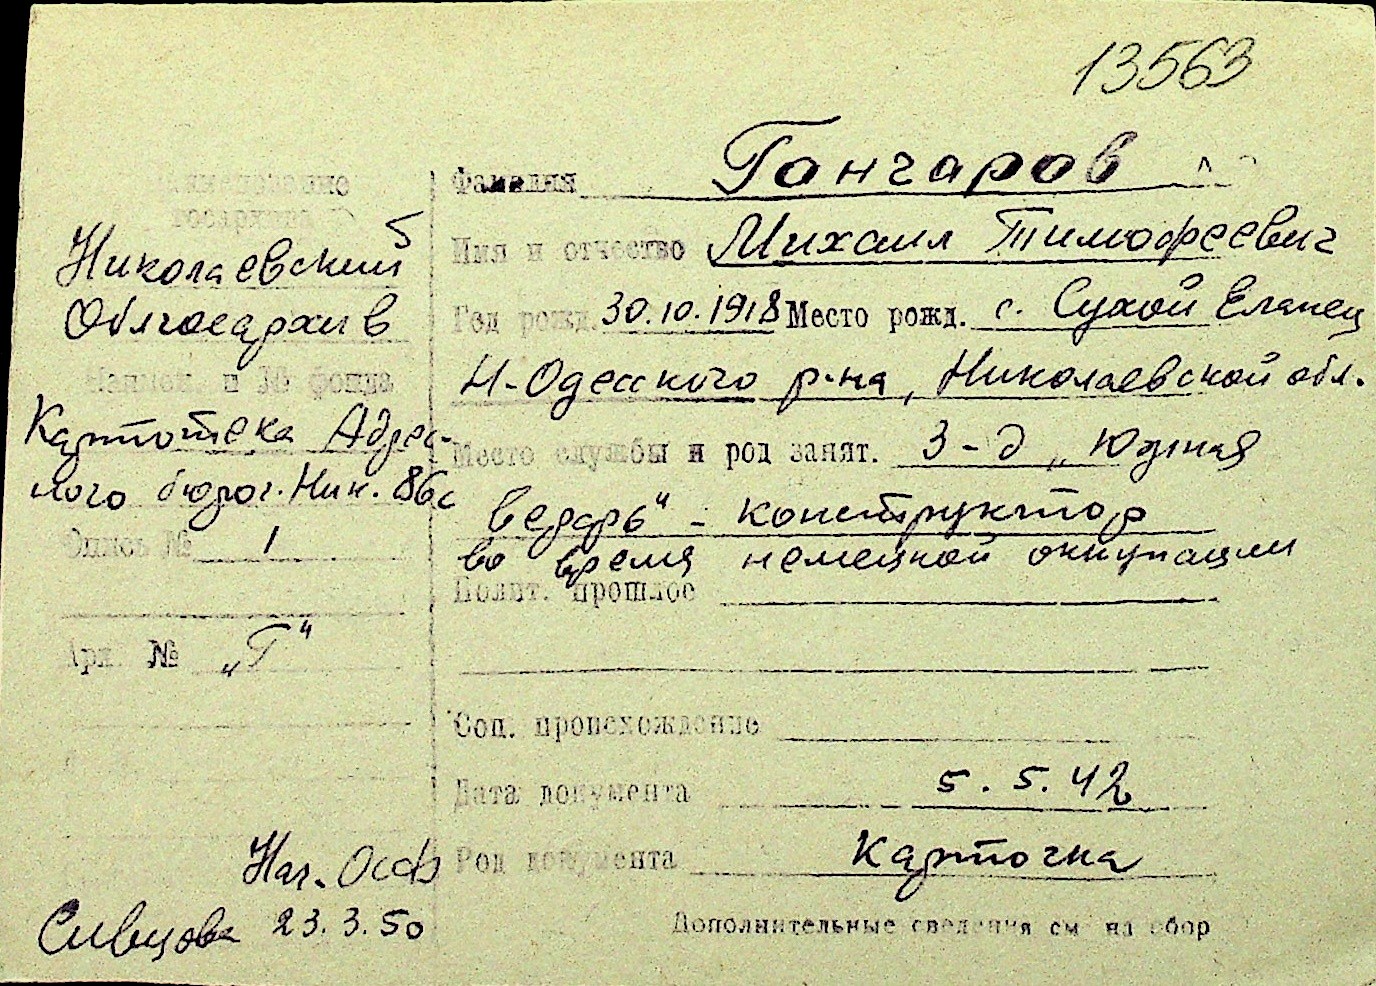 13563
Фамилия Гончаров
Имя и отчество Михаил Тимофеевич
Год рожд. 30.10.1918 Место рожд. с. Сухой Еланец
Н-Одесского р-на, Николаевской обл.
Место службы и род занят. З-д „Южная
верфь" - конструктор
во время немецкой оккупации
Полит. прошлое
Соц. происхождение
Дата документа 5.5.42
Род документа Карточка
Дополнительные сведения см на обор
наименование
госархива
Николаевский
Облгосархив
Наимен. и № фонда
Картотека Адрес-
ного бюро г. Ник. 86с
Опись № 1
Арх. № „Г"
Нач.
Сивцова 23.3.50